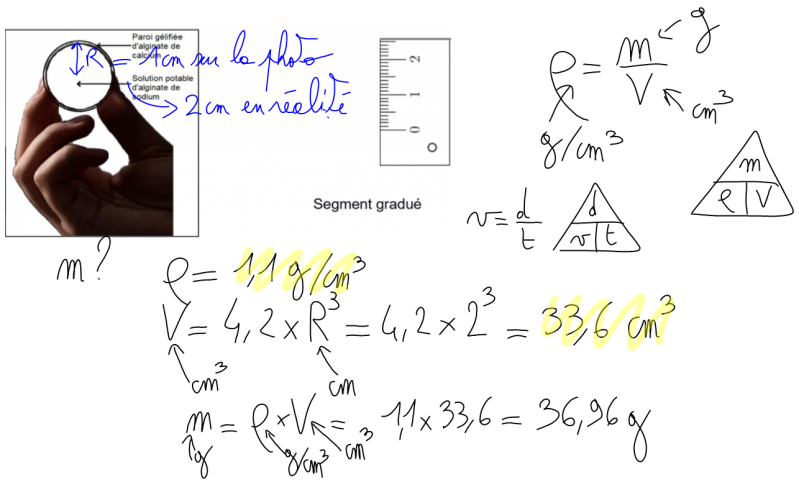 Paroi gélifiée
d'alginate de
calcium
R = 1 cm sur la photo
Solution potable
d'alginate de
sodium
→ 2 cm en réalité
2
1
0
Segment gradué
ρ = m/V
g
cm³
g/cm³
m
ρ V
v = d/t
d
v t
m?
ρ = 1,1 g/cm³
V = 4,2 × R³ = 4,2 × 2³ = 33,6 cm³
cm³
cm
m = ρ × V = 1,1 × 33,6 = 36,96 g
g
g/cm³
cm³